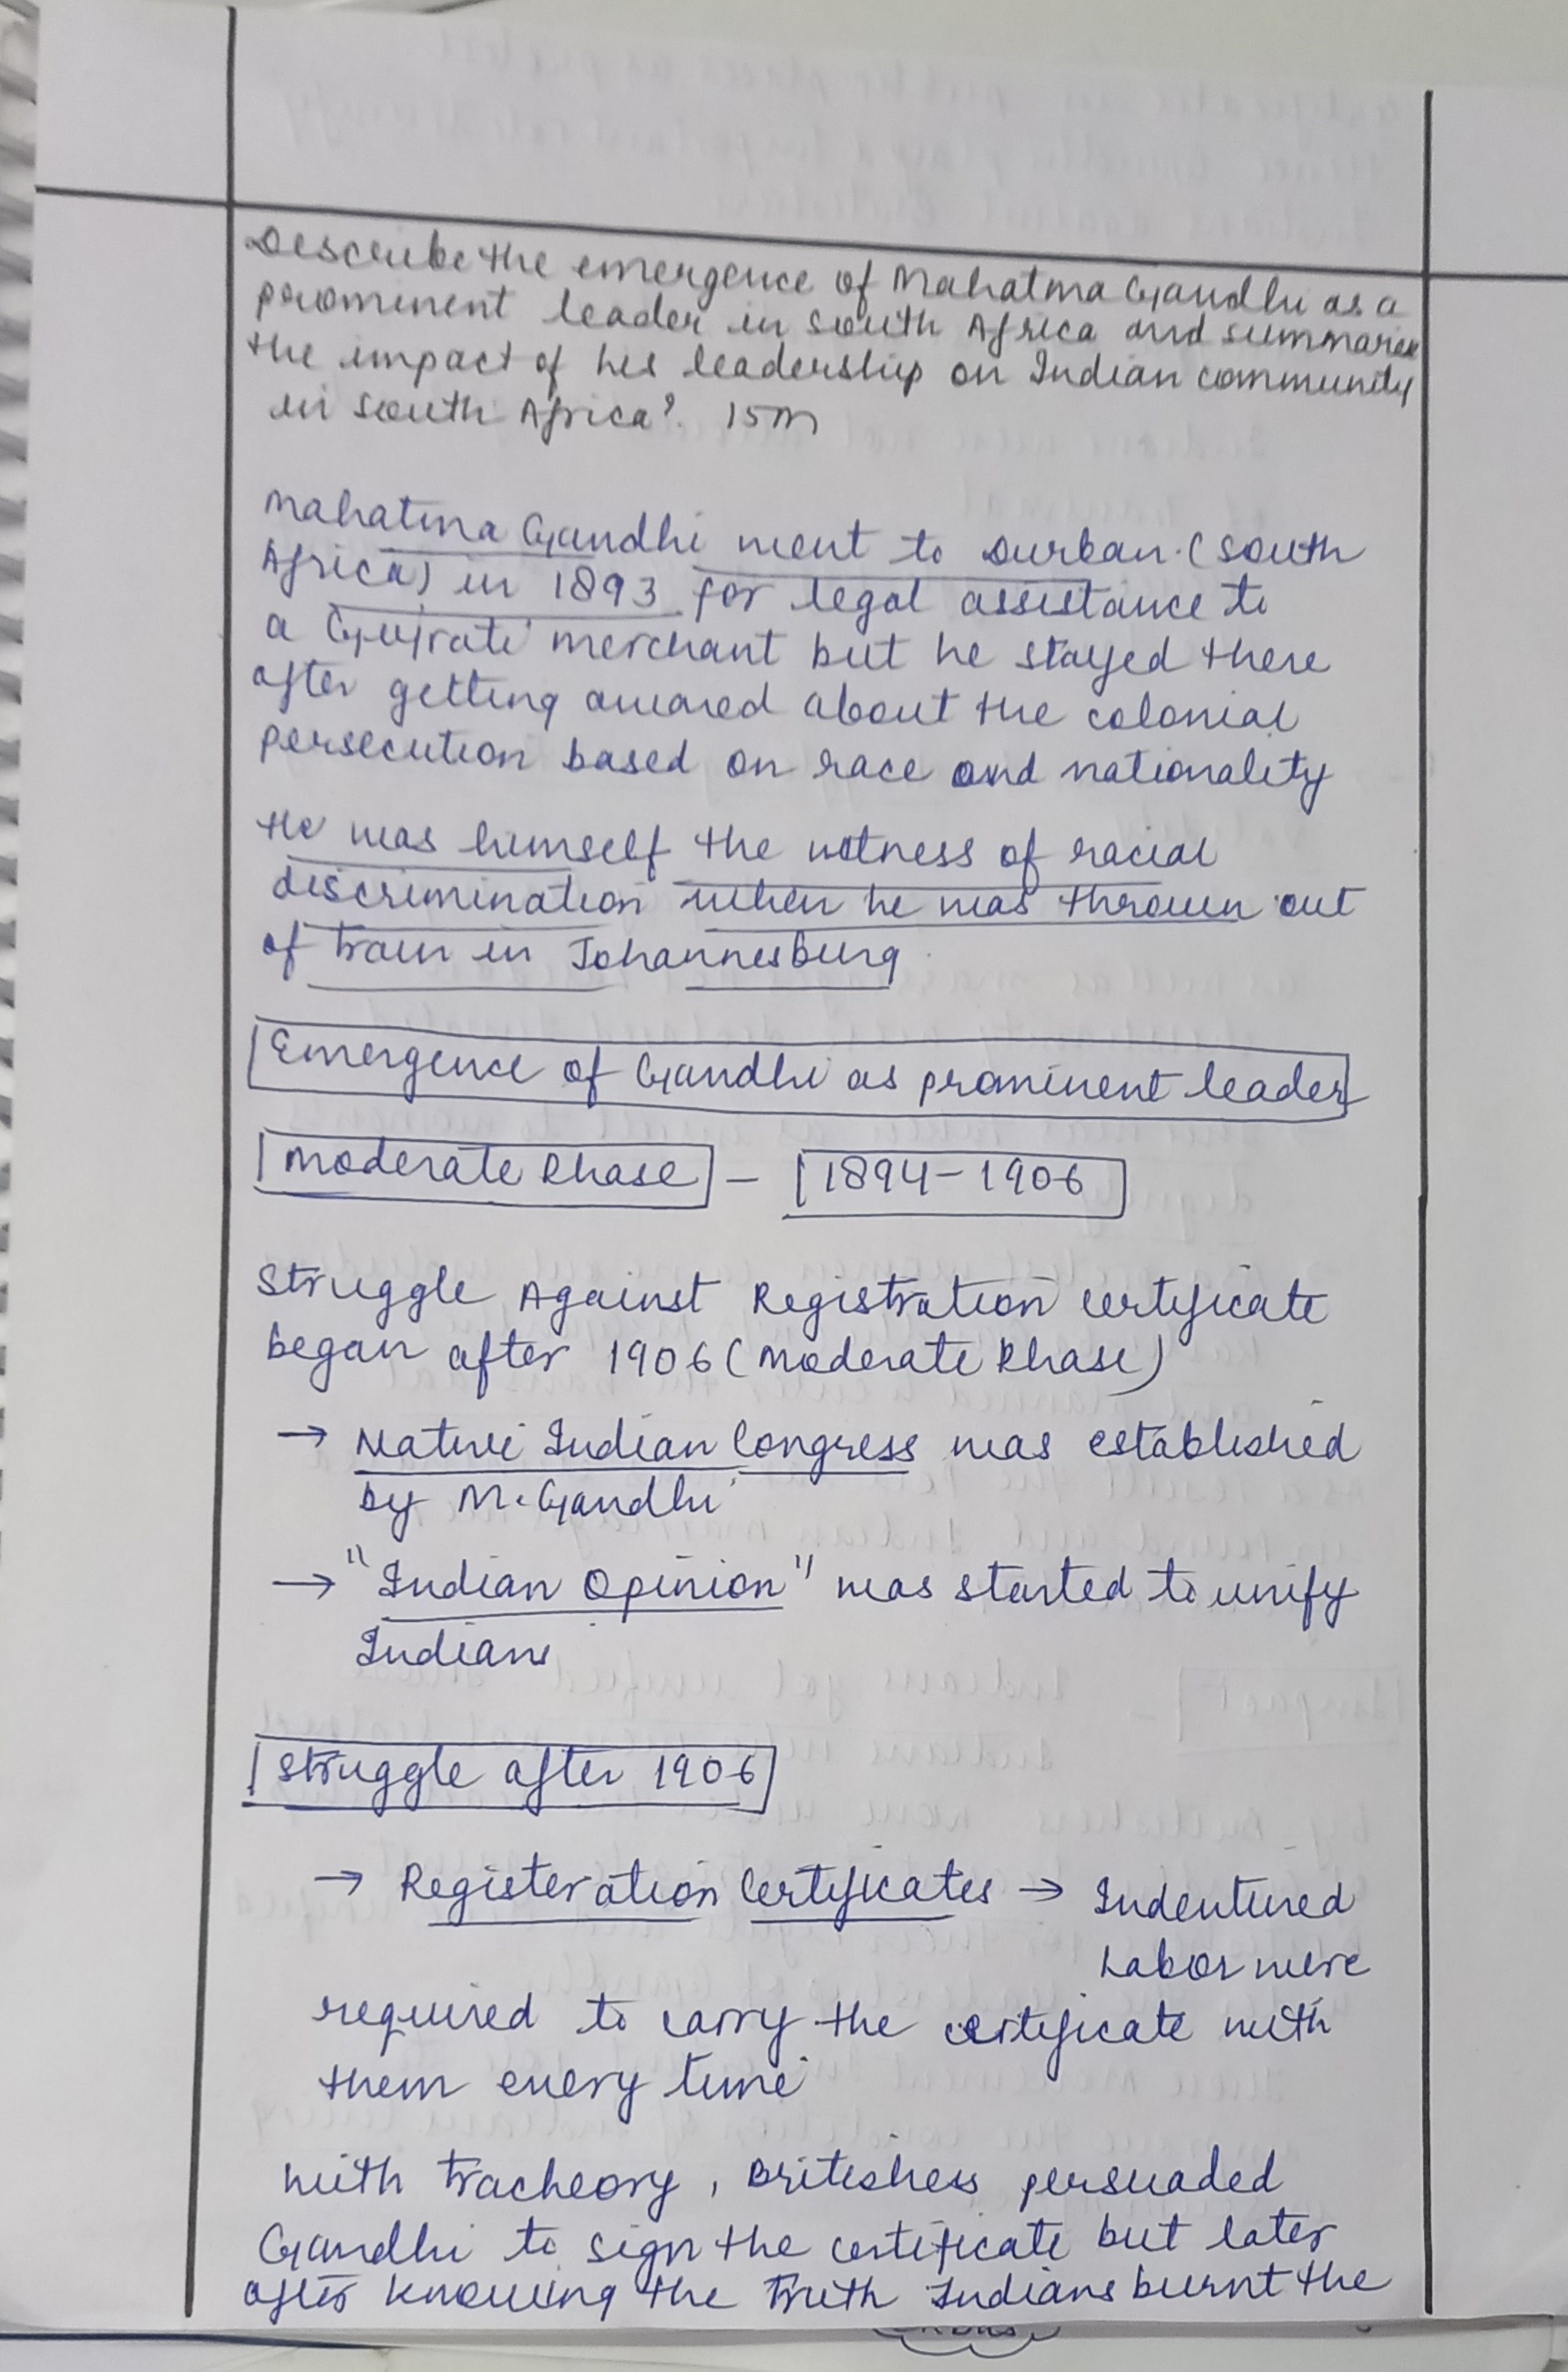 Describe the emergence of Mahatma Gandhi as a
prominent leader in South Africa and summarise
the impact of his leadership on Indian community
in South Africa? 15m
Mahatma Gandhi went to Durban (South
Africa) in 1893 for legal assistance to
a Gujrati merchant but he stayed there
after getting awared about the colonial
persecution based on race and nationality
He was himself the witness of racial
discrimination when he was thrown out
of train in Johannesburg
Emergence of Gandhi as prominent leader
Moderate Phase - 1894-1906
Struggle Against Registration certificate
began after 1906 (Moderate Phase)
→ Native Indian Congress was established
by M. Gandhi
→ "Indian Opinion" was started to unify
Indians
Struggle after 1906
→ Registeration Certificates → Indentured
Labor were
required to carry the certificate with
them every time
With tracheory, Britishess persuaded
Gandhi to sign the certificate but later
after knowing the truth Indians burnt the